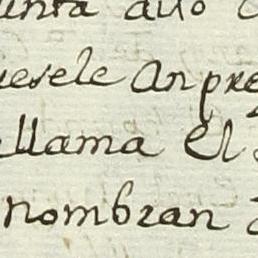 unta año
iesele an pre
ellama el
nombran